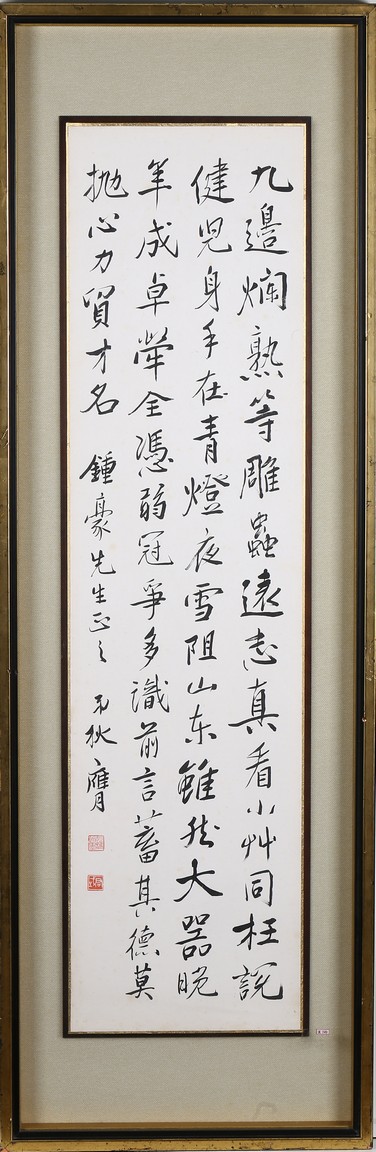 九邊爛熟等雕蟲遠志真看小艸同枉說
健兒身手在青燈夜雪阻山东雖然大器晚
年成卓犖全憑弱冠爭多識前言蓄其德莫
抛心力貿才名 鍾豪先生正之 弔狄膺